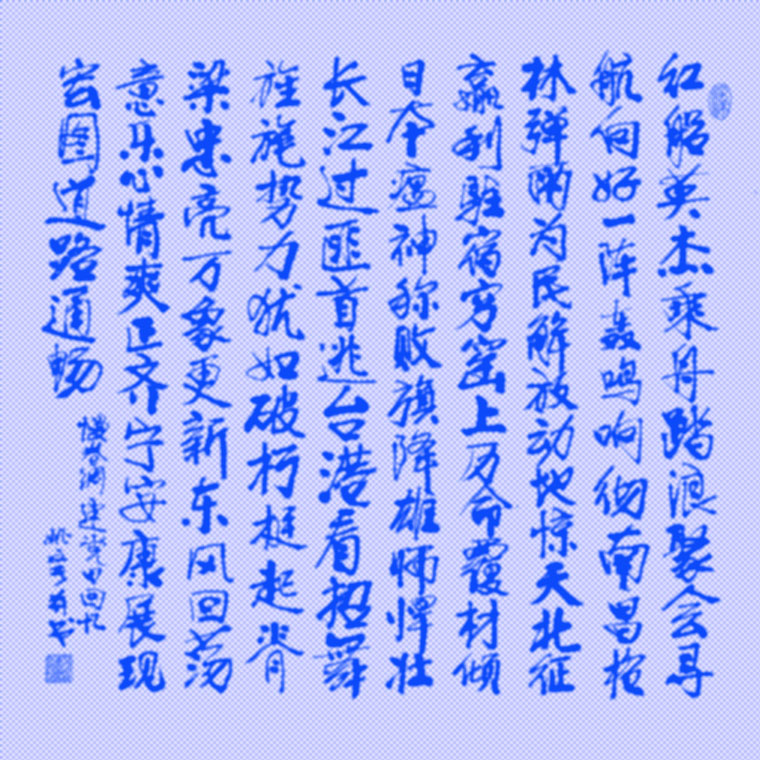 红船英杰乘舟踏浪聚会寻
航向好一阵轰鸣响彻南昌枪
林弹雨为民解放动地惊天北征
赢利驻宿穷窑上方命覆材倾
日本瘟神称败旗降雄师悍壮
长江过匪首逃台港看招舞
旌旄势力犹如破朽挺起脊
梁忠亮万象更新东风回荡
意乐心情爽匡齐宁安康展现
宏图道路通畅
建党
回忆